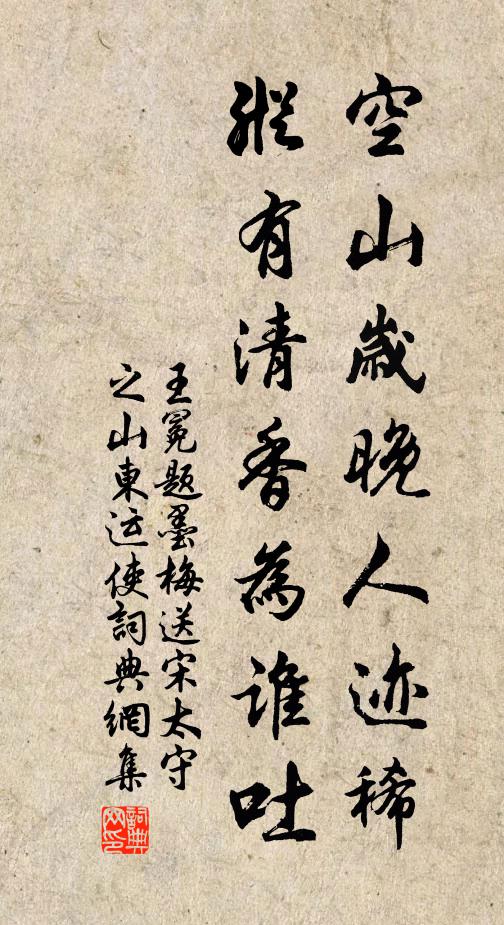 空山歲晚人迹稀
縱有清香為誰吐
王冕題墨梅送宋太守
之山東运使詞典網集
詞典网印